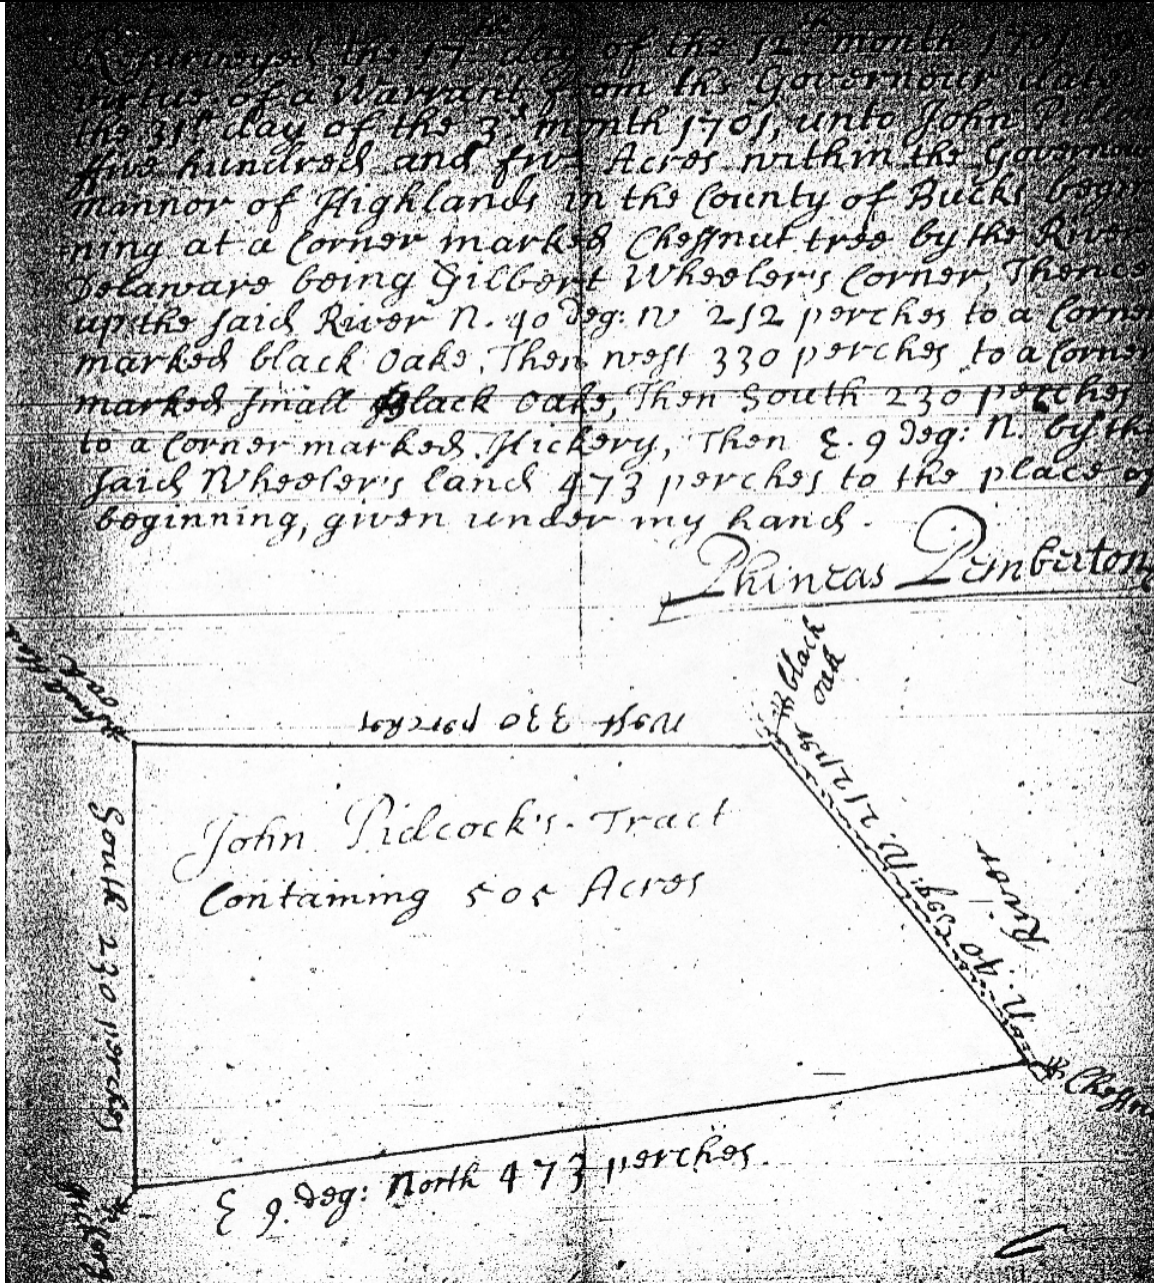 Resurveyed the 17th day of the 12th month 1701
virtue of a Warrant from the Governour date
the 31st day of the 3d month 1701, unto John Pidco
ffive hundred and five Acres within the Governou
mannor of Highlands in the County of Bucks begin
ning at a Corner marked Chessnut tree by the River
Delaware being Gilbert Wheeler's Corner, Thence
up the said River N. 40 deg: W 212 perches to a Corner
marked black Oake, Then west 330 perches to a Corner
marked small black Oake, Then South 230 perches
to a Corner marked Hickery, Then E. 9 deg: N. by the
said Wheeler's land 473 perches to the place of
beginning, given under my hand.
Phineas Pemberton
black
oak
West 330 perches
N. 40 deg: W. 212 per
River
John Pidcock's Tract
Containing 505 Acres
South 230 perches
Chessn
E 9 deg: North 473 perches
Hickery